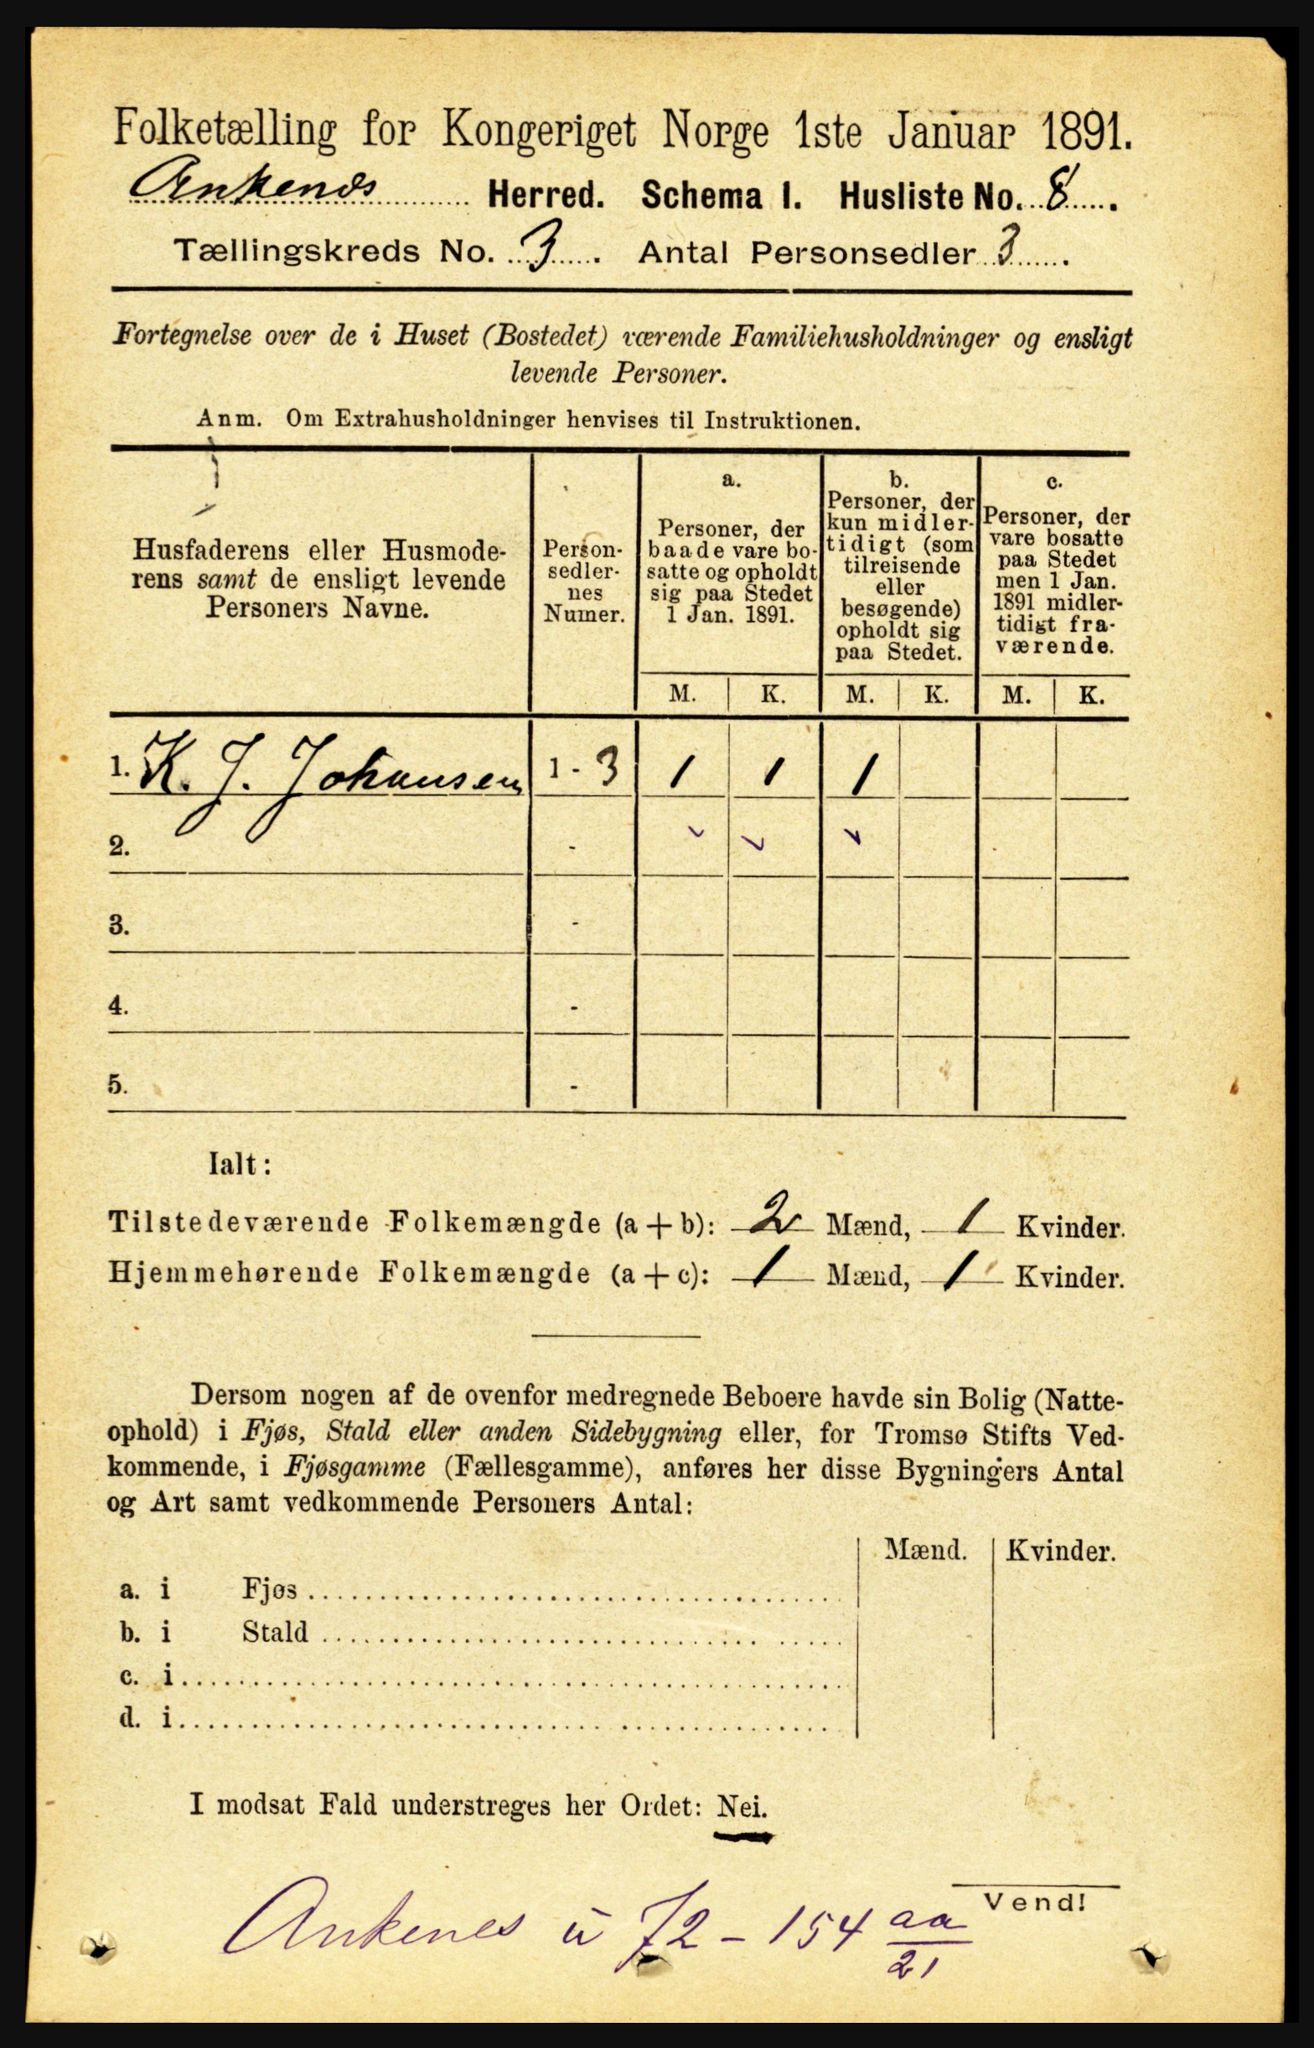 Folketælling for Kongeriget Norge 1ste Januar 1891.
Ankenes Herred. Schema I. Husliste No. 8.
Tællingskreds No. 3. Antal Personsedler 3.
Fortegnelse over de i Huset (Bostedet) værende Familiehusholdninger og ensligt
levende Personer.
Anm. Om Extrahusholdninger henvises til Instruktionen.
Husfaderens eller Husmode-
rens samt de ensligt levende
Personers Navne.
Person-
sedler-
nes
Numer.
a.
Personer, der
baade vare bo-
satte og opholdt
sig paa Stedet
1 Jan. 1891.
b.
Personer, der
kun midler-
tidigt (som
tilreisende
eller
besøgende)
opholdt sig
paa Stedet.
c.
Personer, der
vare bosatte
paa Stedet
men 1 Jan.
1891 midler-
tidigt fra-
værende.
M. K. M. K. M. K.
1. K. J. Johansen 1 - 3 1 1 1
2. -
3. -
4. -
5. -
Ialt:
Tilstedeværende Folkemængde (a + b): 2 Mænd, 1 Kvinder.
Hjemmehørende Folkemængde (a + c): 1 Mænd, 1 Kvinder.
Dersom nogen af de ovenfor medregnede Beboere havde sin Bolig (Natte-
ophold) i Fjøs, Stald eller anden Sidebygning eller, for Tromsø Stifts Ved-
kommende, i Fjøsgamme (Fællesgamme), anføres her disse Bygningers Antal
og Art samt vedkommende Personers Antal:
Mænd. Kvinder.
a. i Fjøs
b. i Stald
c. i
d. i
I modsat Fald understreges her Ordet: Nei.
Vend!
Ankenes u 72 - 154 aa/21